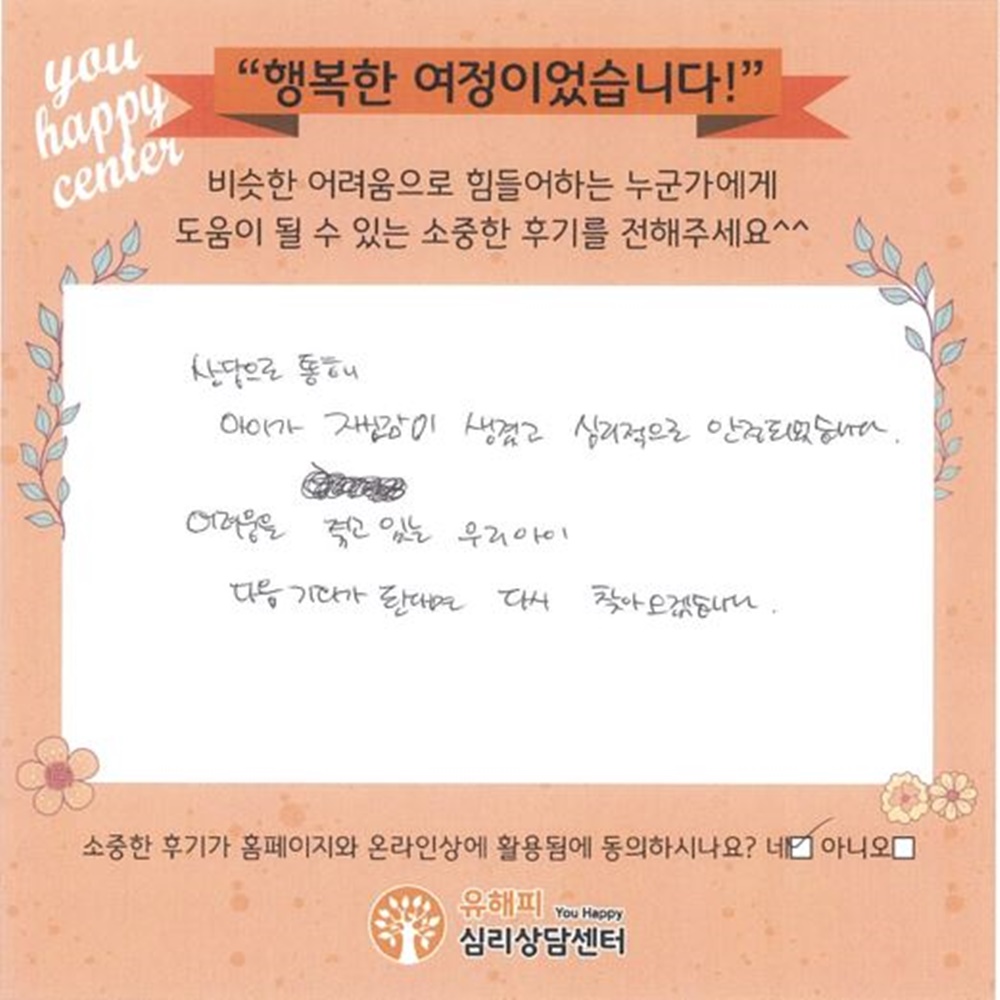 you
happy
center
“행복한 여정이었습니다!”
비슷한 어려움으로 힘들어하는 누군가에게
도움이 될 수 있는 소중한 후기를 전해주세요^^
상담으로 통해
아이가 자신감이 생겼고 심리적으로 안정되었습니다.
어려움을 겪고 있는 우리아이
다음 기회가 된다면 다시 찾아오겠습니다.
소중한 후기가 홈페이지와 온라인상에 활용됨에 동의하시나요? 네 아니오
유해피 You Happy
심리상담센터